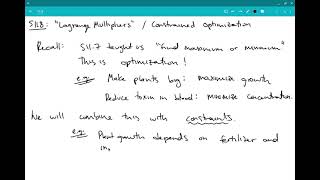 S11.8: "Lagrange Multipliers" / Constrained optimization
Recall: S11.7 taught us "find maximum or minimum"
This is optimization!
e.g. Make plants big: maximize growth
Reduce toxin in blood: minimize concentration.
We will combine this with constraints.
e.g. Plant growth depends on fertilizer and